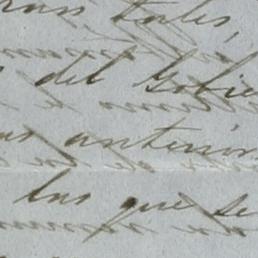 tales,
del Gobie
anterior
las que se